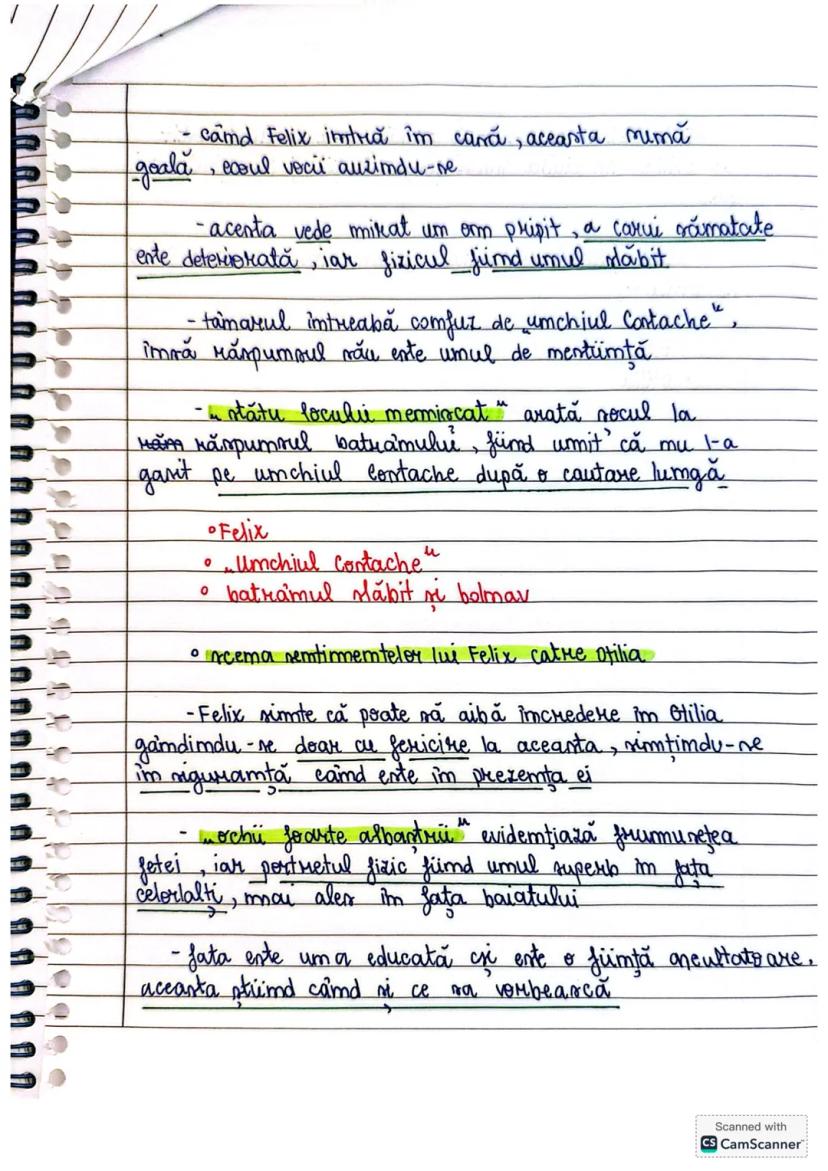 - când Felix intră în casă, aceasta sună
goală, ecoul vocii auzindu-se
- acesta vede mirat un om pripit, a carui sănatate
este deteriorată, iar fizicul fiind unul slăbit
- tânarul întreabă confuz de „unchiul Costache",
însă răspunsul său este unul de nestiință
- „stătu locului nemiscat" arată socul la
răspunsul batrânului, fiind uimit că nu l-a
gasit pe unchiul Costache după o cautare lungă
• Felix
• „Unchiul Costache"
• batrânul slăbit și bolnav
• scena sentimentelor lui Felix catre Otilia
- Felix simte că poate să aibă încredere în Otilia
gândindu-se doar cu fericire la aceasta, simțindu-se
în siguranță când este în prezența ei
- „ochii foarte albaștrii" evidențiază frumusețea
fetei, iar portretul fizic fiind unul superb în fața
celorlalți, mai ales în fața baiatului
- fata este una educată și este o ființă ascultatoare,
aceasta știind când si ce sa vorbească
Scanned with
CS CamScanner